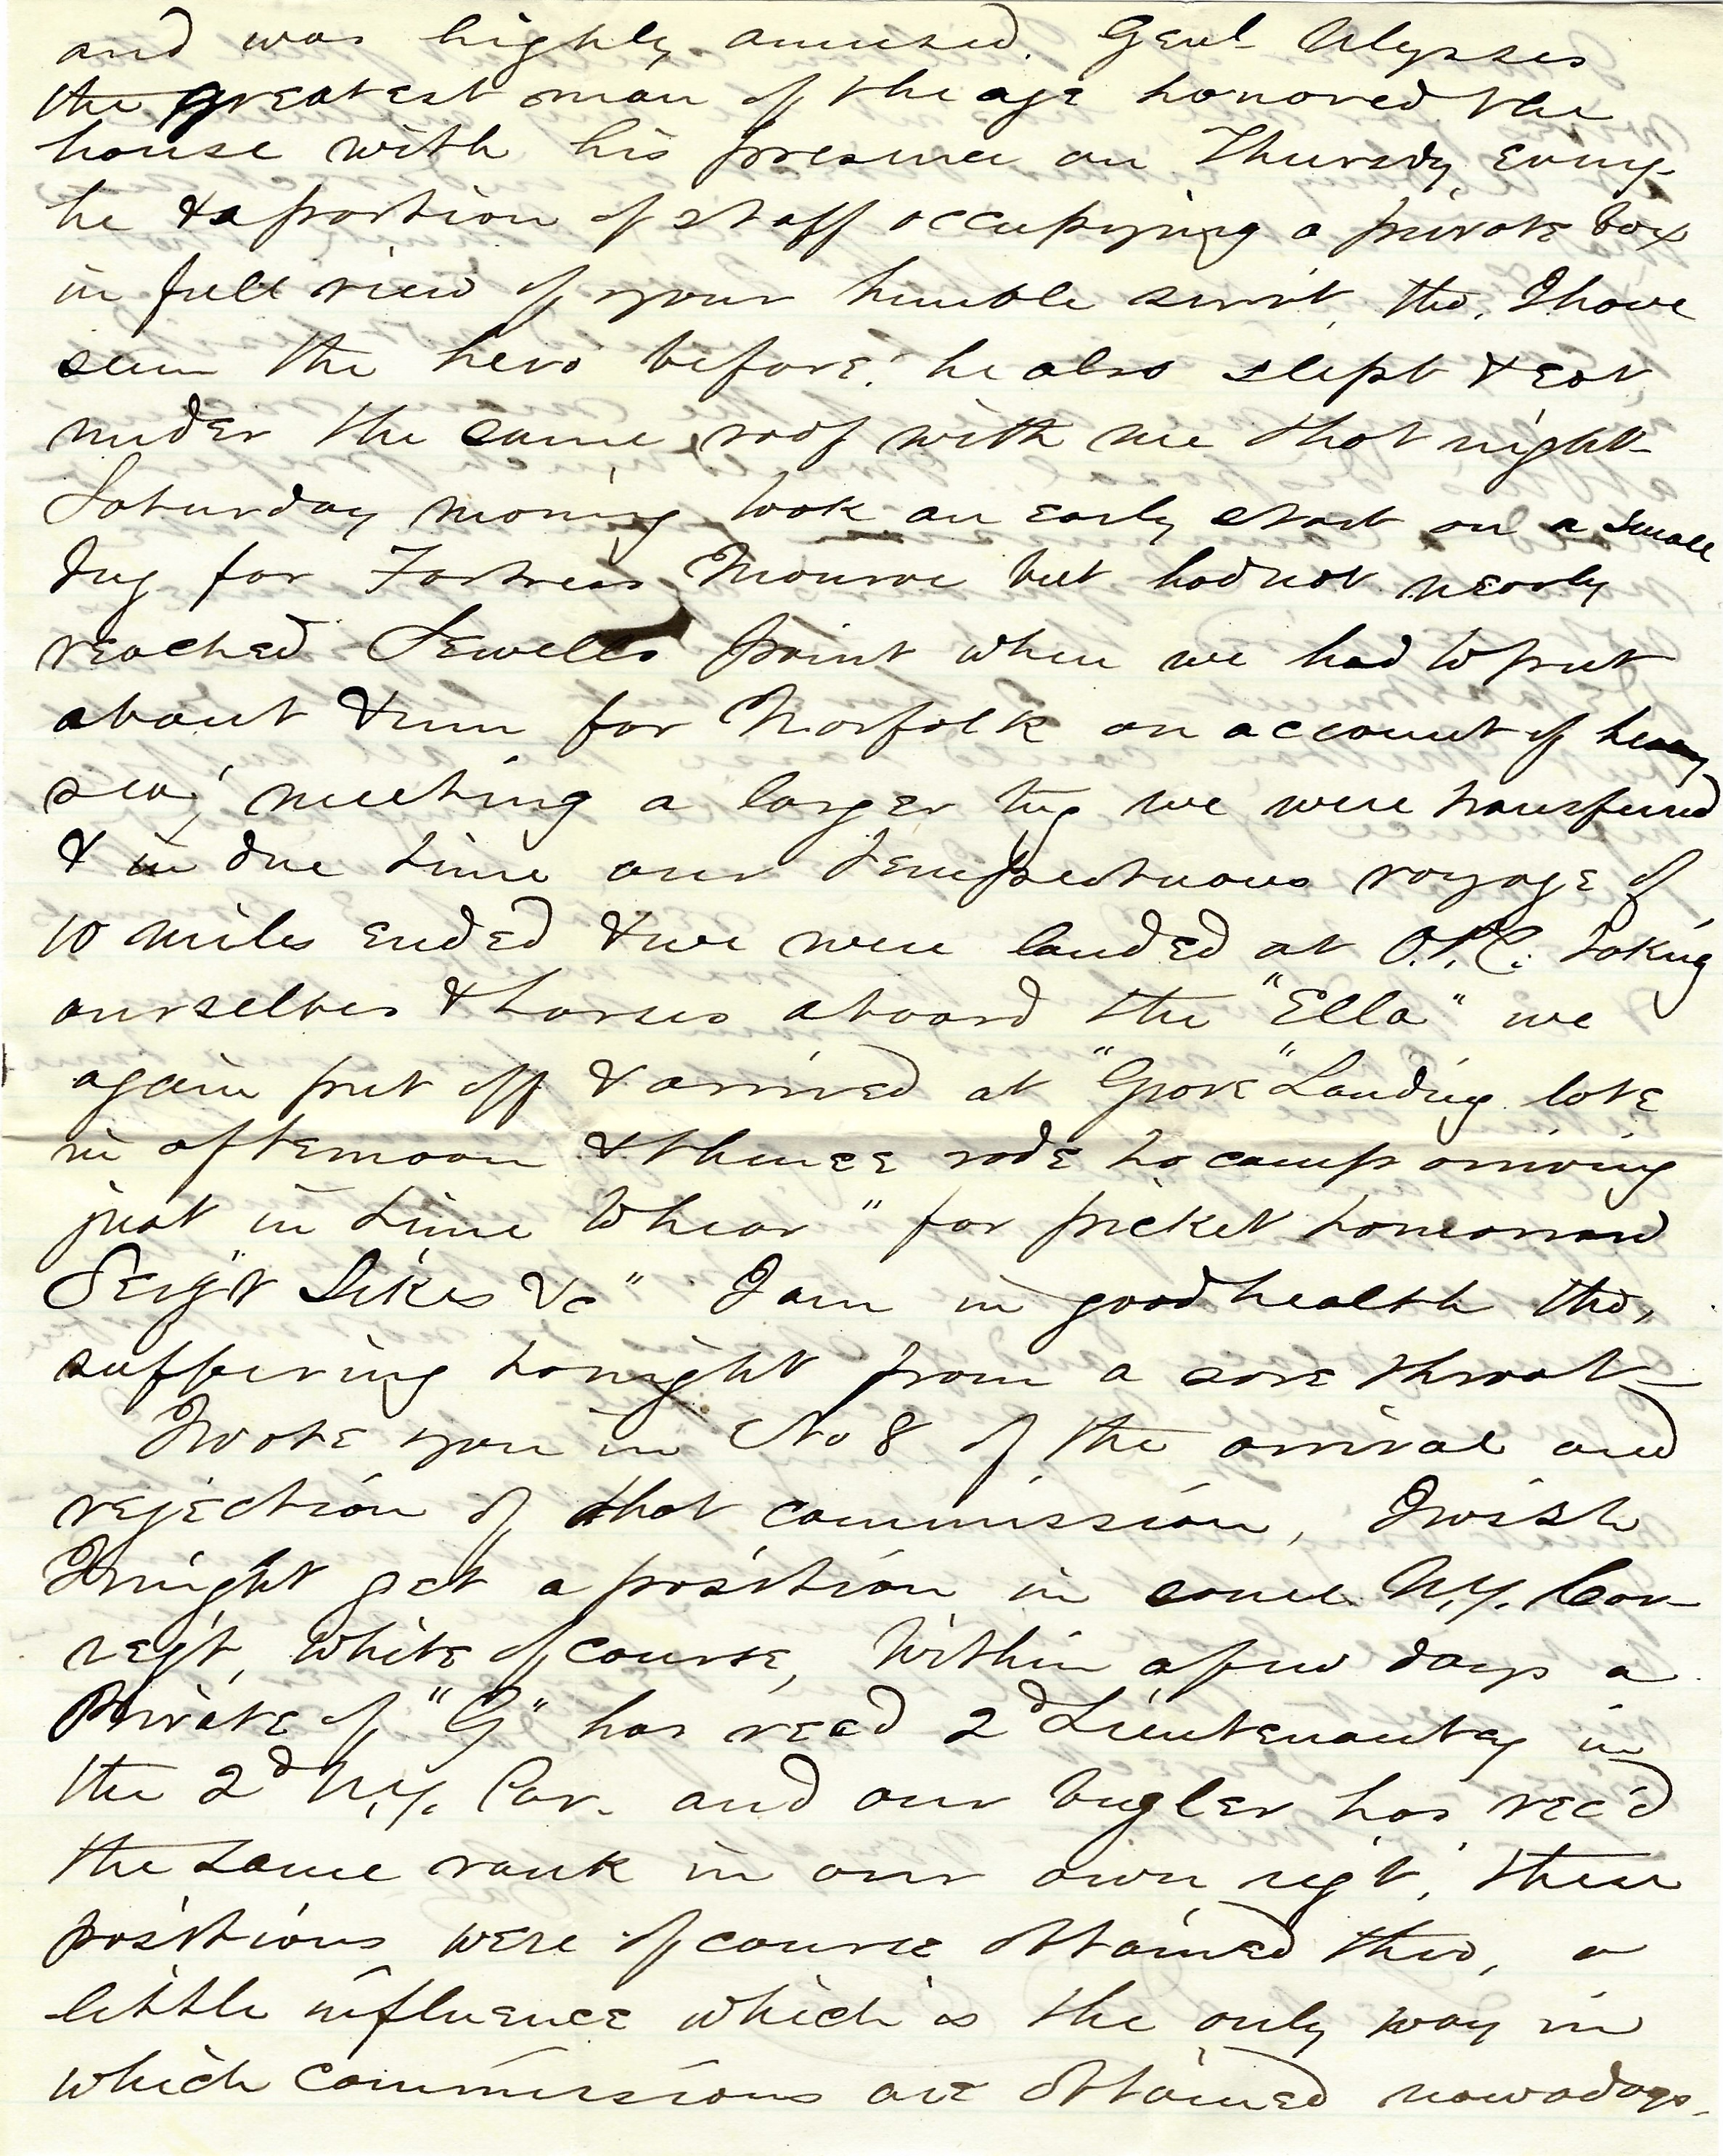 and was highly amused. Genl Ulysses
the greatest man of the age honored the
house with his presence on Thursdy eveng-
he & a portion of staff occupying a private box
in full view of your humble servt, tho, I have
seen the hero before! he also slept & eat
under the same roof with me that night-
Saturday morning took an early start on a small
tug for Fortress Monroe but had not nearly
reached Sewells point when we had to put
about & run for Norfolk on account of heavy
sea; meeting a larger tug we were transferred
& in due time our tempestuous voyage of
10 miles ended & we were landed at O.P.C. taking
ourselves & horses aboard the "Ella" we
again put off & arrived at "Grove" Landing late
in afternoon & thence rode to camp arriving
just in time to hear "for picket tomorrow
Serg't Sikes &c" I am in good health tho,
suffering tonight from a sore throat-
I wrote you in No 8 of the arrival and
rejection of that commission, I wish
I might get a position in some N.Y. Cav
reg't, white of course, Within a few days a
Private of "G" has rec'd 2d Lieutenantcy in
the 2d N.Y. Cav. and our bugler has rec'd
the same rank in our own reg't, these
positions were of course obtained thro, a
little influence which is the only way in
which commissions are obtained nowadays.